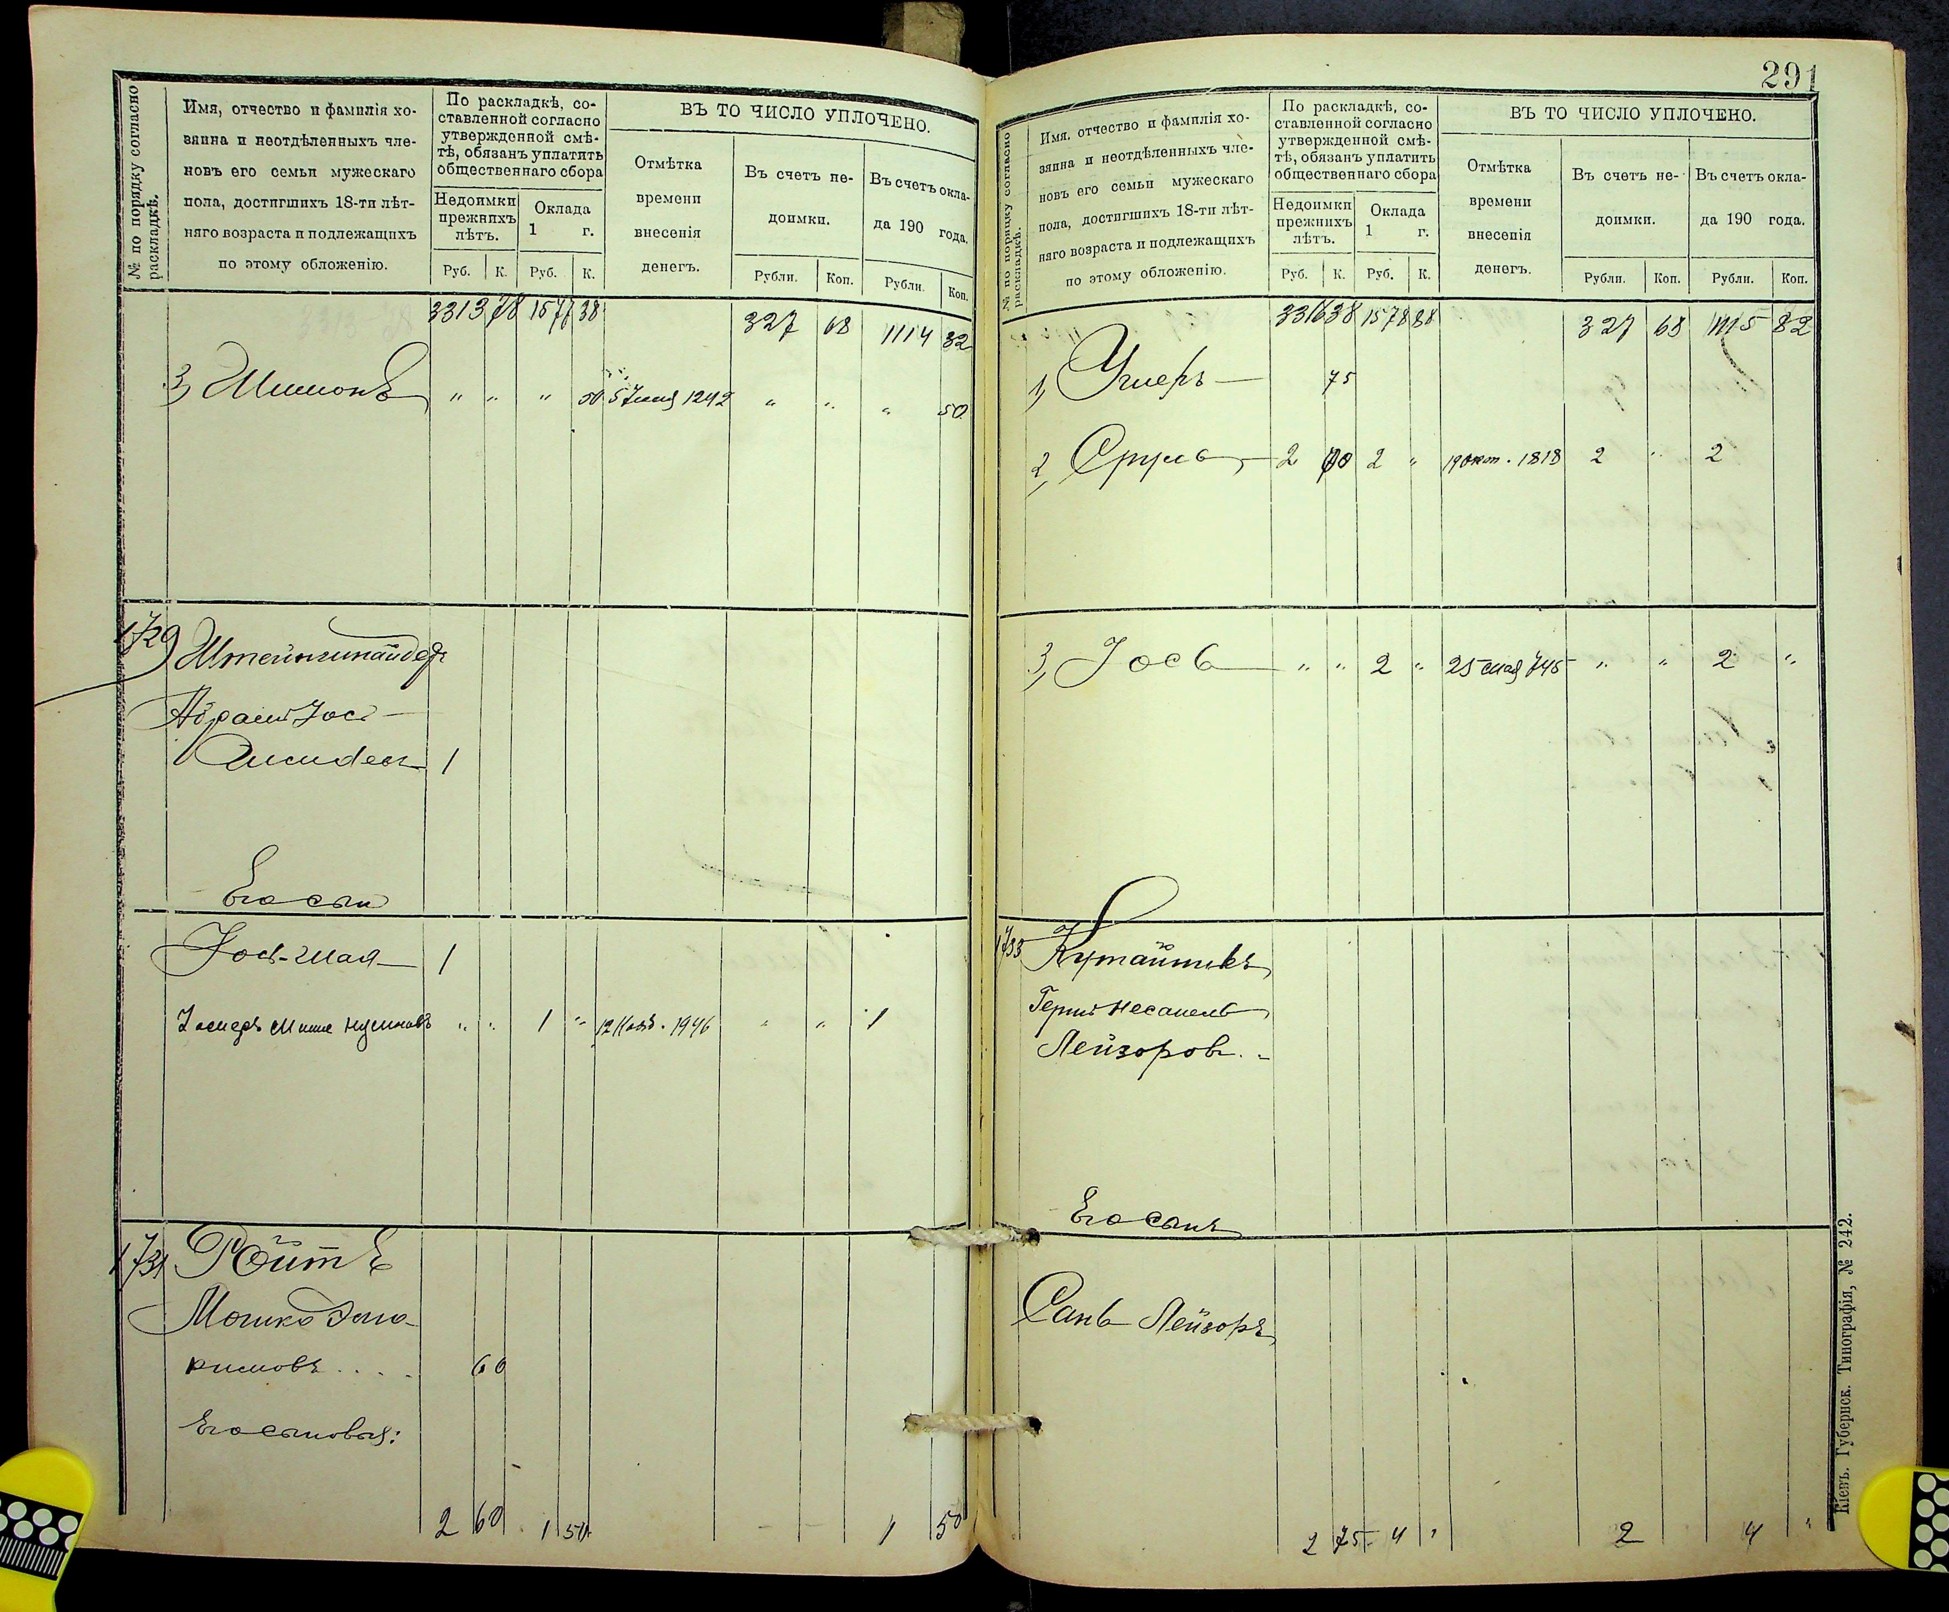 № по порядку согласно раскладкѣ.
Имя, отчество и фамилія хо-
зяина и неотдѣленныхъ чле-
новъ его семьи мужескаго
пола, достигшихъ 18-ти лѣт-
няго возраста и подлежащихъ
по этому обложенію.
По раскладкѣ, со-
ставленной согласно
утвержденной смѣ-
тѣ, обязанъ уплатить
общественнаго сбора
Недоимки
прежнихъ
лѣтъ.
Оклада
1 г.
Руб. К. Руб. К.
ВЪ ТО ЧИСЛО УПЛОЧЕНО.
Отмѣтка
времени
внесенія
денегъ.
Въ счетъ не-
доимки.
Въ счетъ окла-
да 190 года.
Рубли. Коп. Рубли. Коп.
3313 78 1577 38 327 68 1114 32
3, Шимонъ " " " 50 5 Iюня 1242 " " " 50
1729
Абрамъ Iось
1
Его сын
Iось-Шая 1
" " 1 " 12 Нояб. 1946 " " 1
1731 Ройтъ
Мошко
60
Его сыновья:
2 60 1 50 1 50
291
№ по порядку согласно раскладкѣ.
Имя, отчество и фамилія хо-
зяина и неотдѣленныхъ чле-
новъ его семьи мужескаго
пола, достигшихъ 18-ти лѣт-
няго возраста и подлежащихъ
по этому обложенію.
По раскладкѣ, со-
ставленной согласно
утвержденной смѣ-
тѣ, обязанъ уплатить
общественнаго сбора
Недоимки
прежнихъ
лѣтъ.
Оклада
1 г.
Руб. К. Руб. К.
ВЪ ТО ЧИСЛО УПЛОЧЕНО.
Отмѣтка
времени
внесенія
денегъ.
Въ счетъ не-
доимки.
Въ счетъ окла-
да 190 года.
Рубли. Коп. Рубли. Коп.
3316 38 1578 88 327 68 1115 82
1, Ушеръ 75
2, Сруль 2 2 " 19 окт. 1818 2 " 2
3, Iось " " 2 " 25 мая 745 " " 2 "
1733 Кутайникъ
Гершъ Несанель
Лейзоровъ
Его сынъ
Лейзоръ
2 75 4 " 2 4 "
Кіевъ. Губернск. Типографія, № 242.